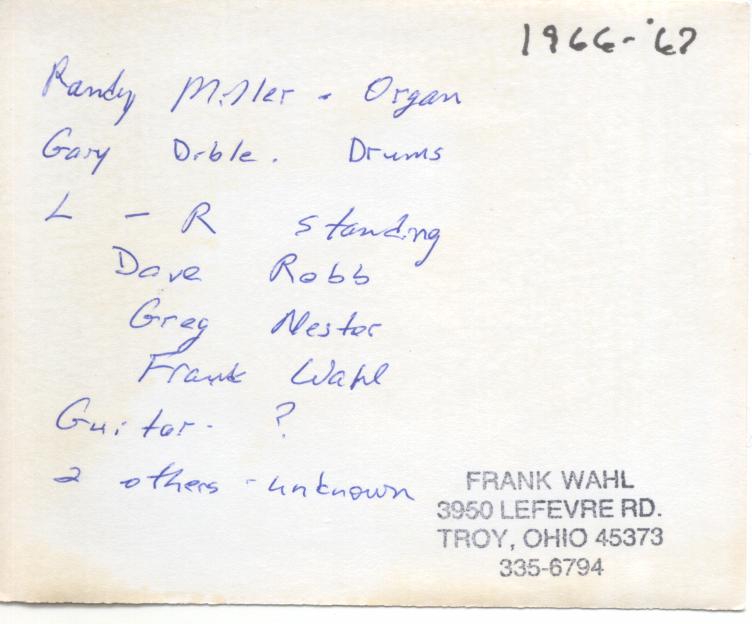 1966-'67
Randy Miller - Organ
Gary Dible. Drums
L - R standing
Dave Robb
Greg Nester
Frank Wahl
Guitar - ?
2 others - unknown
FRANK WAHL
3950 LEFEVRE RD.
TROY, OHIO 45373
335-6794